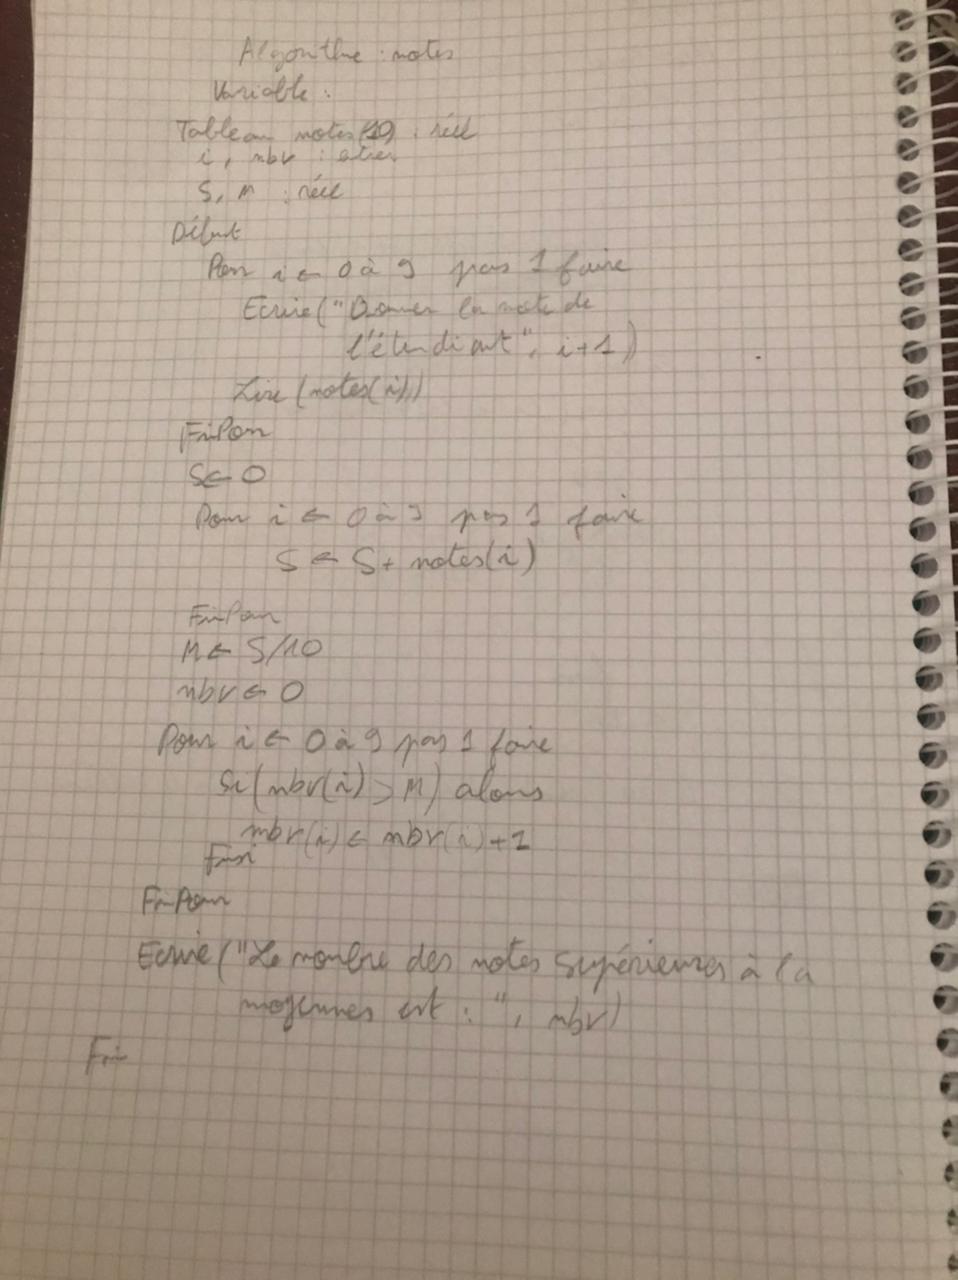 Algorithme : notes
Variable :
Tableau notes(10) : réel
i, nbr : entier
S, M : réel
Début
Pour i ← 0 à 9 pas 1 faire
Ecrire("Donner la note de
l'étudiant", i+1)
Lire (notes(i))
FinPour
S ← 0
Pour i ← 0 à 9 pas 1 faire
S ← S + notes(i)
FinPour
M ← S/10
nbr ← 0
Pour i ← 0 à 9 pas 1 faire
Si (nbr(i) > M) alors
nbr(i) ← nbr(i)+1
Finsi
FinPour
Ecrire ("Le nombre des notes supérieures à la
moyennes est : ", nbr)
Fin